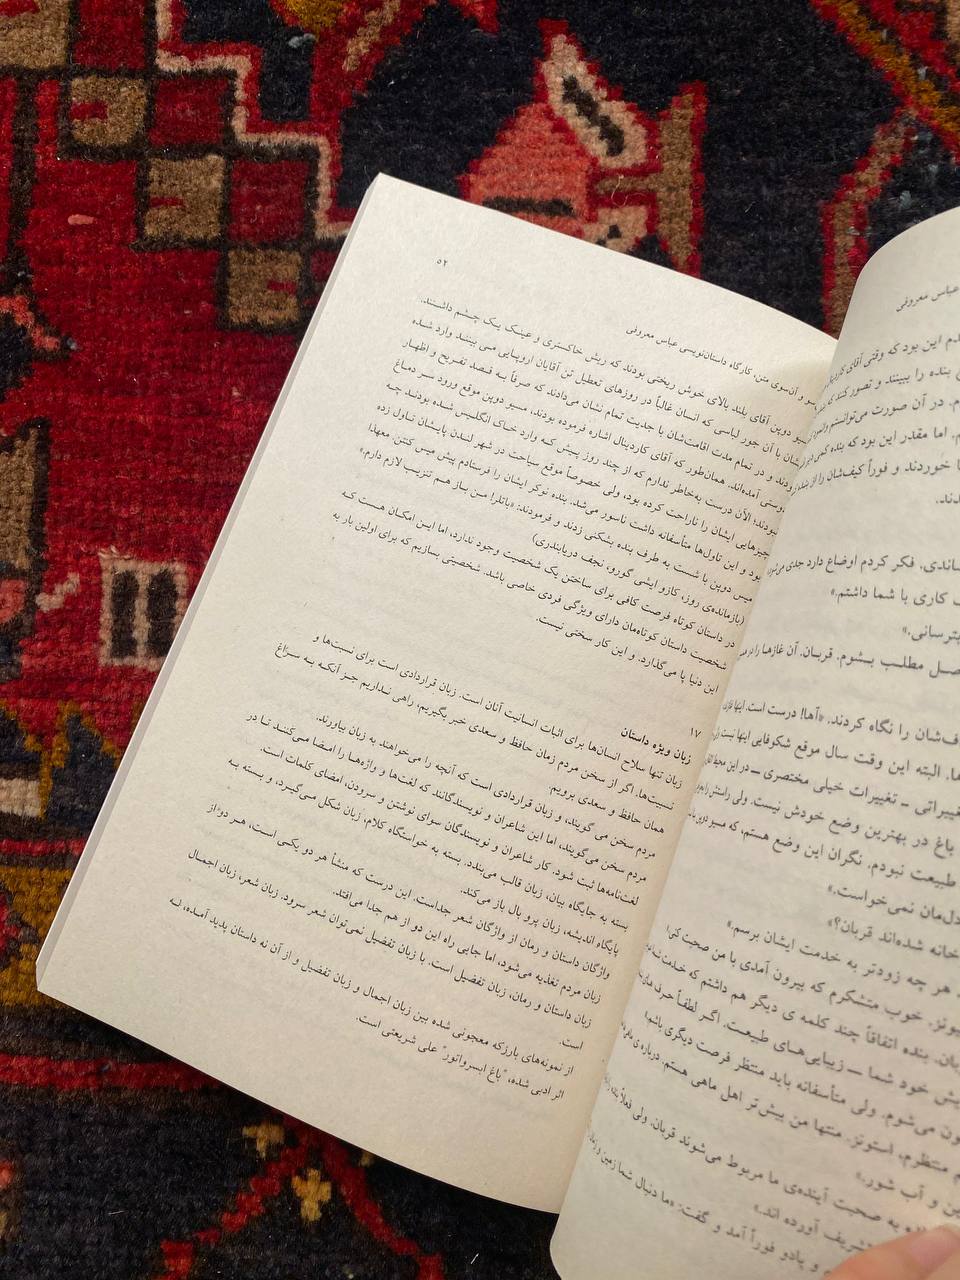 ۵۲
سو و آن‌سوی متن، کارگاه داستان‌نویسی عباس معروفی
دوپن آقای بلند بالای خوش ریختی بودند که ریش خاکستری و عینک یک چشم داشتند.
شان با آن جور لباسی که انسان غالباً در روزهای تعطیل تن آقایان اروپایی می بیند وارد شده
ودند و در تمام مدت اقامت‌شان با جدیت تمام نشان می‌دادند که صرفاً به قصد تفریح و اظهار
دوستی آمده‌اند. همان‌طور که آقای کاردینال اشاره فرموده بودند، مسیر دوپن موقع ورود سر دماغ
نبودند؛ الآن درست به‌خاطر ندارم که از چند روز پیش که وارد خاک انگلیس شده بودند چه
چیزهایی ایشان را ناراحت کرده بود، ولی خصوصاً موقع سیاحت در شهر لندن پایشان تاول زده
بود و این تاول‌ها متأسفانه داشت ناسور می‌شد. بنده نوکر ایشان را فرستادم پیش میس کنتن. معهذا
میس دوپن با شست به طرف بنده بشکنی زدند و فرمودند: «باتلر! من باز هم تنزیب لازم دارم.»
(بازمانده‌ی روز، کازو ایشی گورو، نجف دریابندری)
در داستان کوتاه فرصت کافی برای ساختن یک شخصیت وجود ندارد، اما این امکان هست که
شخصیت داستان کوتاه‌مان دارای ویژگی فردی خاصی باشد. شخصیتی بسازیم که برای اولین بار به
این دنیا پا می‌گذارد. و این کار سختی نیست.
۱۷
زبان ویژه داستان
زبان تنها سلاح انسان‌ها برای اثبات انسانیت آنان است. زبان قراردادی است برای نسبت‌ها و
نسبت‌ها. اگر از سخن مردم زمان حافظ و سعدی خبر بگیریم، راهی نداریم جز آنکه به سراغ
همان حافظ و سعدی برویم.
مردم سخن می گویند، و زبان قراردادی است که آنچه را می‌خواهند به زبان بیاورند.
مردم سخن می‌گویند، اما این شاعران و نویسندگانند که لغت‌ها و واژه‌ها را امضا می‌کنند تا در
لغت‌نامه‌ها ثبت شود. کار شاعران و نویسندگان سوای نوشتن و سرودن، امضای کلمات است.
بسته به جایگاه بیان، زبان قالب می‌بندد. بسته به خواستگاه کلام، زبان شکل می‌گیرد، و بسته به
پایگاه اندیشه، زبان پرو بال باز می‌کند.
واژگان داستان و رمان از واژگان شعر جداست. این درست که منشأ هر دو یکی است، هر دو از
زبان مردم تغذیه می‌شود، اما جایی راه این دو از هم جدا می‌افتد.
زبان داستان و رمان، زبان تفضیل است. با زبان تفضیل نمی‌توان شعر سرود. زبان شعر، زبان اجمال
است.
از نمونه‌های بارزکه معجونی شده بین زبان اجمال و زبان تفضیل و از آن نه داستان پدید آمده، نه
اثر ادبی شده، "باغ ابسرواتور" علی شریعتی است.
عباس معروفی
دم این بود که وقتی آقای
بنده را ببینند و تصور کنند که
در آن صورت می‌توانستم
اما مقدر این بود که بنده کمی
خوردند و فوراً کیف‌شان را از
ند.
ساندی. فکر کردم اوضاع دارد جدی
کاری با شما داشتم.»
بترسانی.»
صل مطلب بشوم. قربان. آن غازها را در
ف‌شان را نگاه کردند. «آها! درست است. اینها
ها. البته این وقت سال موقع شکوفایی اینها نیست
تغییراتی ــ تغییرات خیلی مختصری ــ در این محیط
باغ در بهترین وضع خودش نیست. ولی راستش را
طبیعت نبودم. نگران این وضع هستم، که مسیر دوپن
دل‌مان نمی‌خواست.»
خانه شده‌اند قربان؟»
هر چه زودتر به خدمت ایشان برسم.»
ونز. خوب متشکرم که بیرون آمدی با من صحبت کنی!
بان. بنده اتفاقاً چند کلمه ی دیگر هم داشتم که خدمت
یش خود شما ــ زیبایی‌های طبیعت. اگر لطفاً حرف‌های
ون می‌شوم. ولی متأسفانه باید منتظر فرصت دیگری باشم!
منتظرم، استونز. منتها من بیش‌تر اهل ماهی هستم. درباره ی
ین و آب شور.»
ده به صحبت آینده‌ی ما مربوط می‌شوند قربان، ولی فعلاً
شریف آورده اند.»
و پادو فوراً آمد و گفت: «ما دنبال شما زمین و